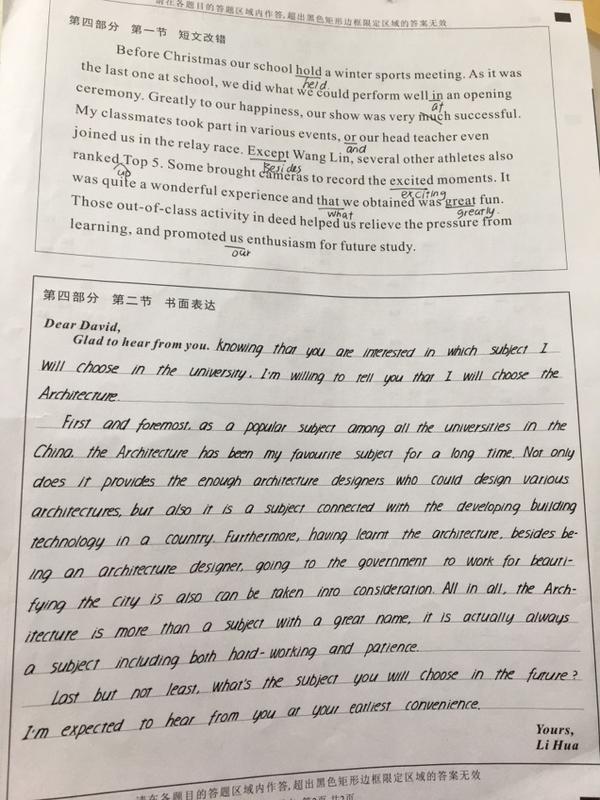 请在各题目的答题区域内作答,超出黑色矩形边框限定区域的答案无效
第四部分 第一节 短文改错
Before Christmas our school hold a winter sports meeting. As it was
held
the last one at school, we did what we could perform well in an opening
at
ceremony. Greatly to our happiness, our show was very much successful.
My classmates took part in various events, or our head teacher even
and
joined us in the relay race. Except Wang Lin, several other athletes also
Besides
ranked Top 5. Some brought cameras to record the excited moments. It
up
exciting
was quite a wonderful experience and that we obtained was great fun.
what
greatly.
Those out-of-class activity in deed helped us relieve the pressure from
learning, and promoted us enthusiasm for future study.
our
第四部分 第二节 书面表达
Dear David,
Glad to hear from you. Knowing that you are interested in which subject I
will choose in the university, I'm willing to tell you that I will choose the
Architecture.
First and foremost, as a popular subject among all the universities in the
China, the Architecture has been my favourite subject for a long time. Not only
does it provides the enough architecture designers who could design various
architectures, but also it is a subject connected with the developing building
technology in a country. Furthermore, having learnt the architecture, besides be-
ing an architecture designer, going to the government to work for beauti-
fying the city is also can be taken into consideration. All in all, the Arch-
itecture is more than a subject with a great name, it is actually always
a subject including both hard-working and patience.
Last but not least, what's the subject you will choose in the future?
I'm expected to hear from you at your earliest convenience.
Yours,
Li Hua
请在各题目的答题区域内作答,超出黑色矩形边框限定区域的答案无效